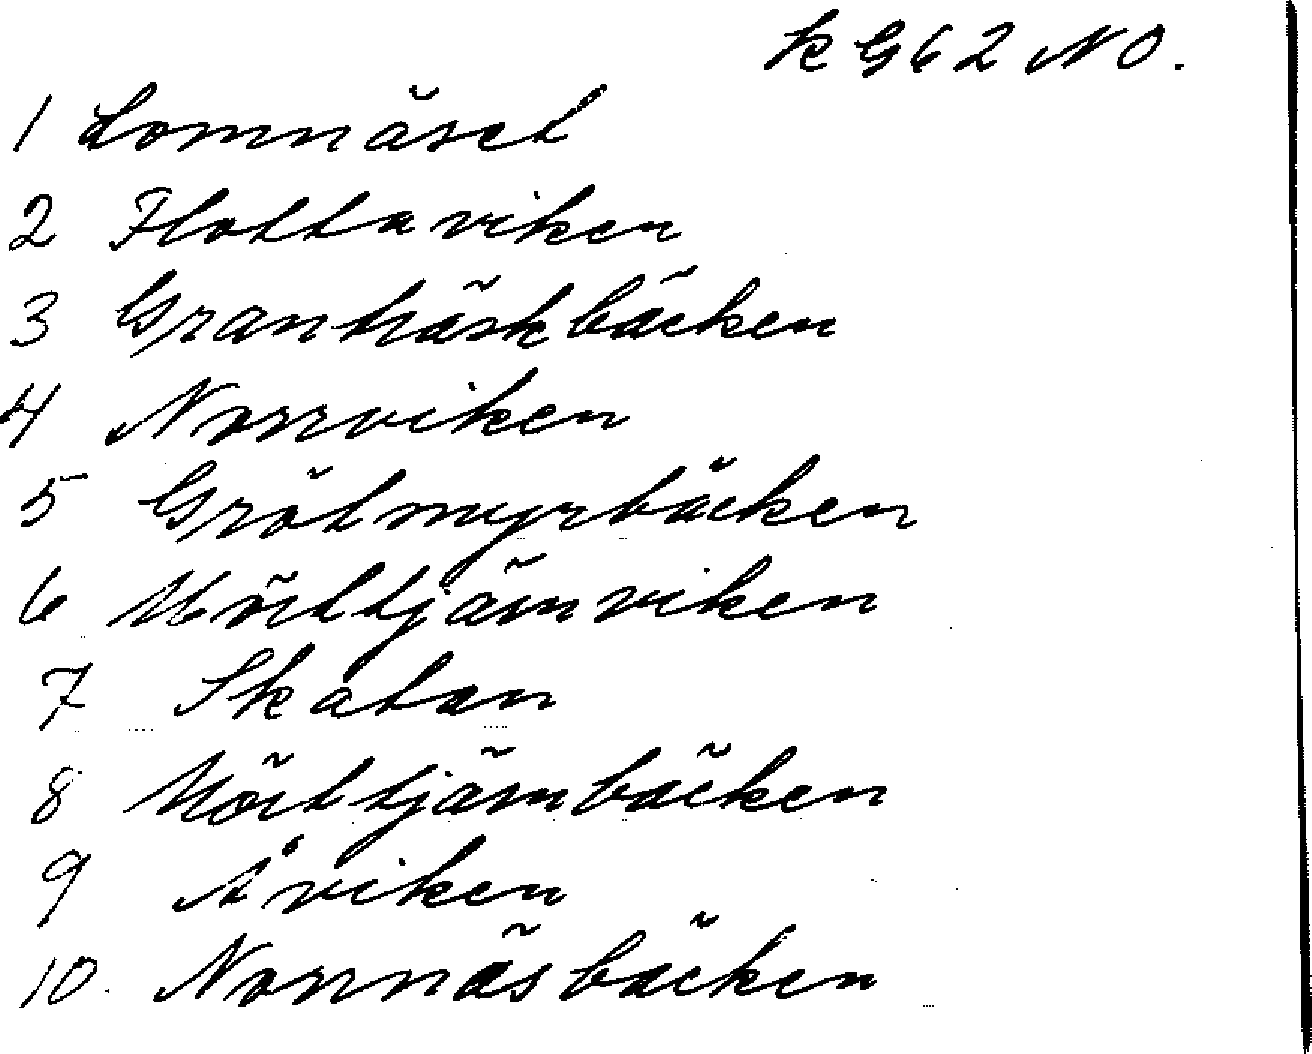 k G62 NO.
1 Lomnäset
2 Flottaviken
3 Granträskbäcken
4 Norrviken
5 Grötmyrbäcken
6 Mörttjärnviken
7 Skatan
8 Mörttjärnbäcken
9 Åviken
10. Norrnäsbäcken